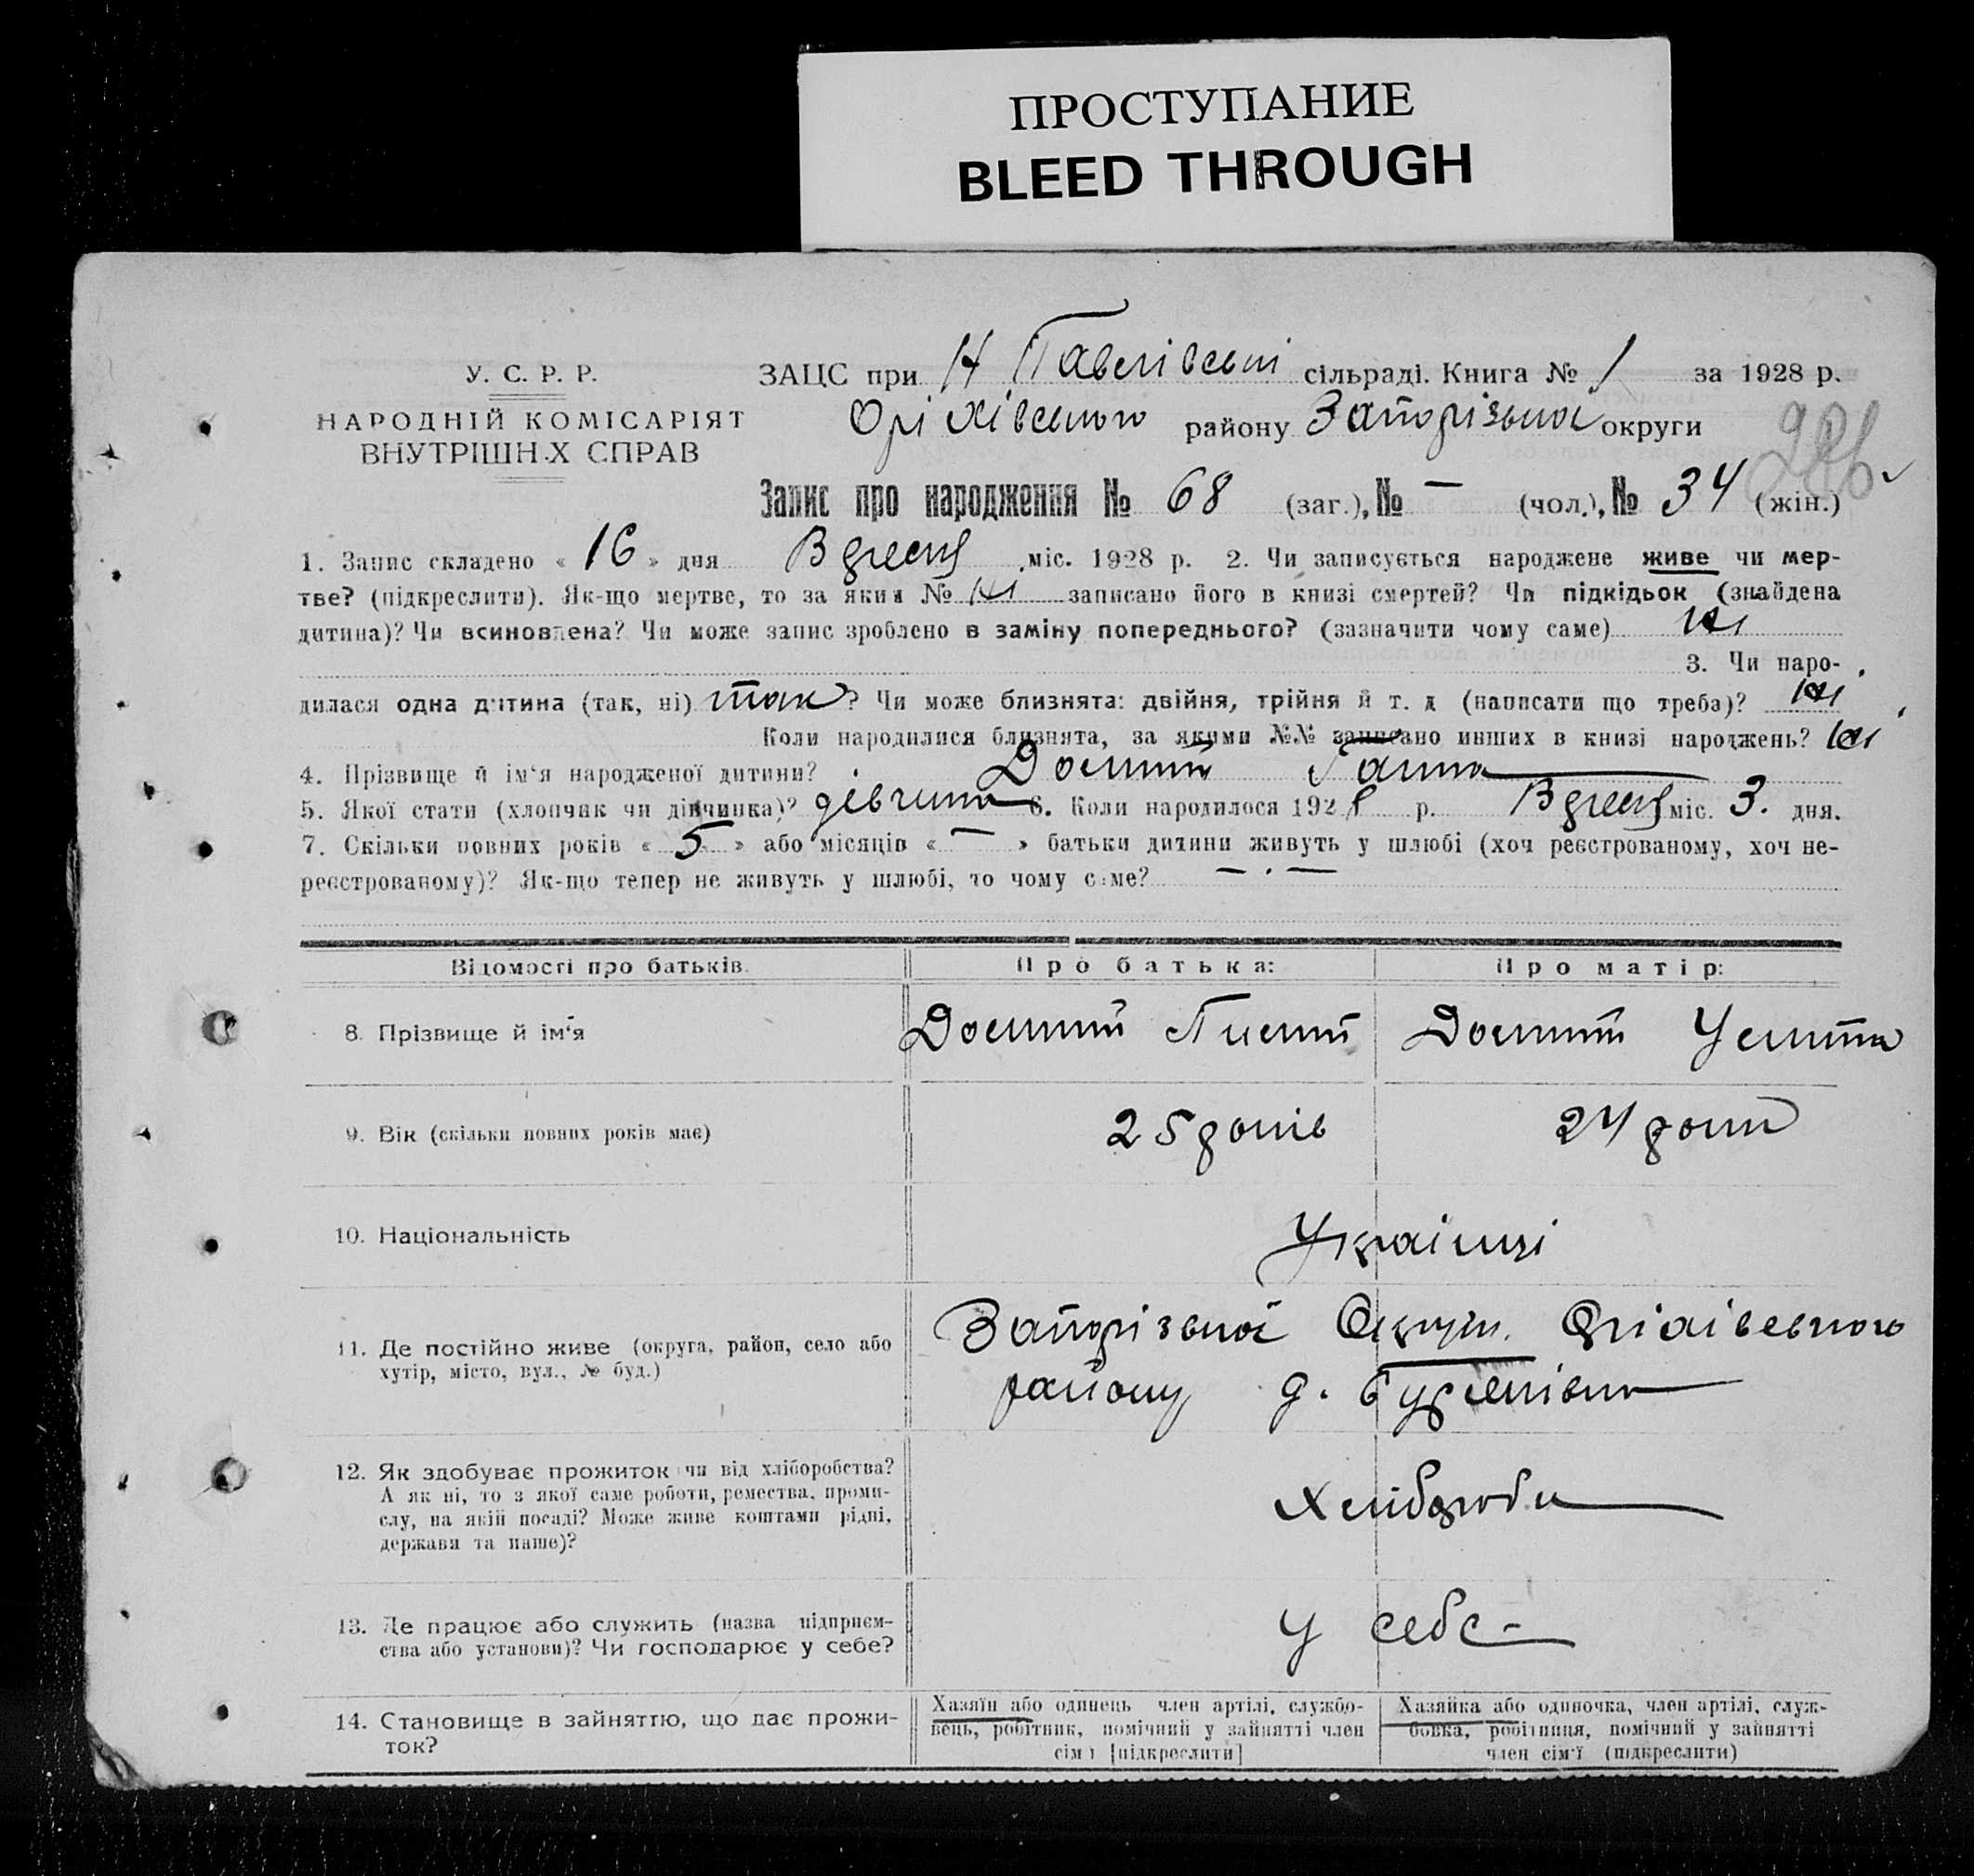 ПРОСТУПАНИЕ
BLEED THROUGH
У. С. Р. Р.
НАРОДНІЙ КОМІСАРІЯТ
ВНУТРІШН.Х СПРАВ
ЗАЦС при Н Павлівській сільраді. Книга № 1 за 1928 р.
Оріхівського району Запорізької округи
Запис про народження № 68 (заг.), № — (чол.), № 34 (жін.)
1. Запис складено « 16 » дня міс. 1928 р. 2. Чи записується народжене живе чи мер-
тве? (підкреслити). Як-що мертве, то за яким № ні записано його в книзі смертей? Чи підкідьок (знайдена
дитина)? Чи всиновлена? Чи може запис зроблено в заміну попереднього? (зазначити чому саме) ні
3. Чи наро-
дилася одна дитина (так, ні) так ? Чи може близнята: двійня, трійня й т. д (написати що треба)? ні
Коли народилися близнята, за якими №№ записано инших в книзі народжень? ні
4. Прізвище й ім‘я народженої дитини? Ганна
5. Якої стати (хлопчик чи дівчинка)? дівчина 6. Коли народилося 1928 р. міс. 3. дня.
7. Скільки повних років « 5 » або місяців « — » батьки дитини живуть у шлюбі (хоч реєстрованому, хоч не-
реєстрованому)? Як-що тепер не живуть у шлюбі, то чому саме? — . —
Відомості про батьків. Про батька: Про матір:
8. Прізвище й ім‘я
9. Вік (скільки повних років має) 25 років 24 роки
10. Національність Українці
11. Де постійно живе (округа, район, село або Запорізької Округи. Оріхівського
хутір, місто, вул., № буд.) району
12. Як здобуває прожиток чи від хліборобства? Хлібороби
А як ні, то з якої саме роботи, ремества, проми-
слу, на якій посаді? Може живе коштами рідні,
держави та инше)?
13. Де працює або служить (назва підприєм- У себе
ства або установи)? Чи господарює у себе?
14. Становище в зайняттю, що дає прожи-
ток?
Хазяїн або одинець член артілі, службо-
вець, робітник, помічний у зайнятті член
сім'ї [підкреслити]
Хазяйка або одиночка, член артілі, служ-
бовка, робітниця, помічний у зайнятті
член сім'ї (підкреслити)